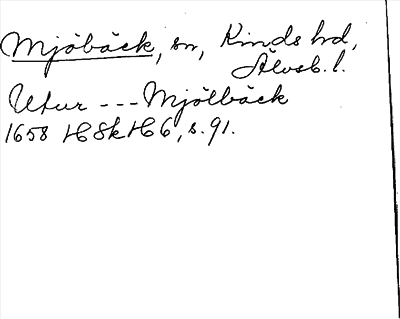 Mjöbäck, sn, Kinds hd,
Älvsb. l.
Utur --- Mjölbäck
1658 HSH H6, s. 91.